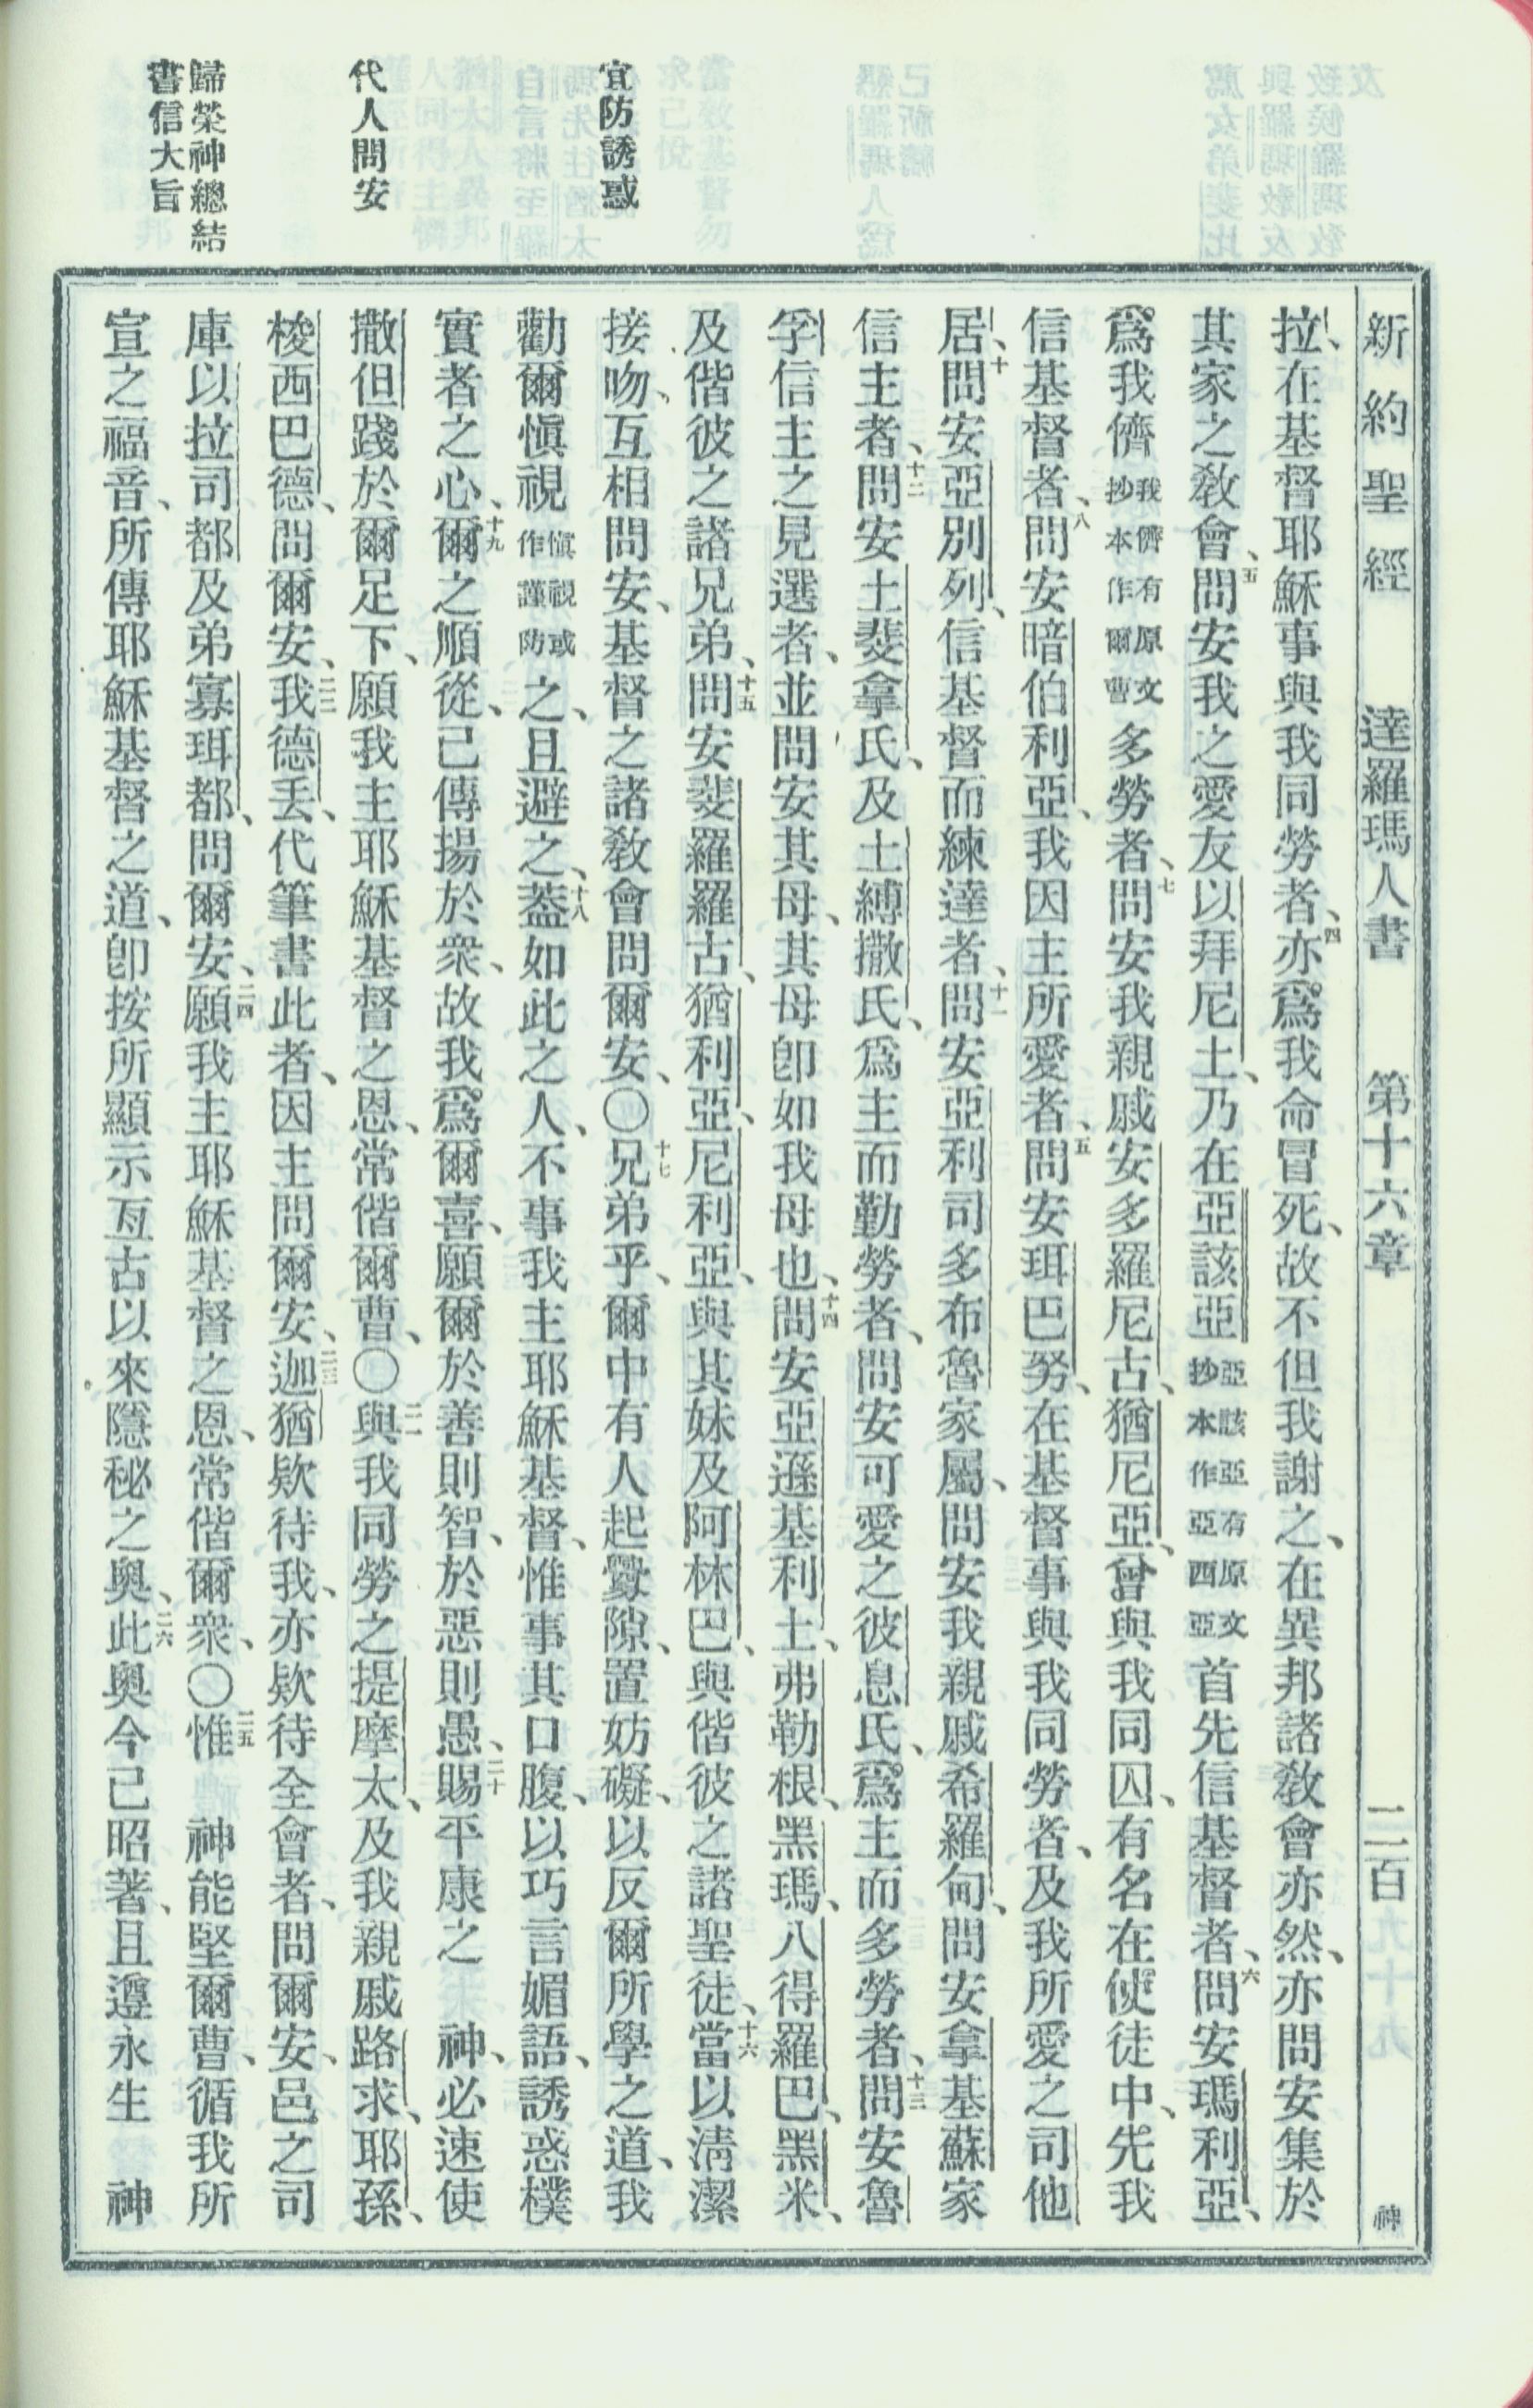 新約聖經 達羅瑪人書 第十六章 二百 神
拉、在基督耶穌事與我同勞者、四亦爲我命冒死、故不但我謝之、在異邦諸教會亦然、亦問安集於
其家之教會、五問安我之愛友以拜尼土、乃在亞該亞亞該亞有原文抄本作亞西亞首先信基督者、六問安瑪利亞、
爲我儕我儕有原文抄本作爾曹多勞者、七問安我親戚安多羅尼古、猶尼亞、曾與我同囚、有名在使徒中、先我
信基督者、八問安暗伯利亞、我因主所愛者、五問安珥巴努、在基督事與我同勞者、及我所愛之司他
居、十問安亞別列、信基督而練達者、十一問安亞利司多布魯家屬、問安我親戚希羅甸、問安拿基蘇家
信主者、十二問安土斐拿氏、及土縛撒氏、爲主而勤勞者、問安可愛之彼息氏、爲主而多勞者、十三問安魯
孚信主之見選者、並問安其母、其母卽如我母也、十四問安亞遜基利土、弗勒根、黑瑪、八得羅巴、黑米、
及偕彼之諸兄弟、十五問安斐羅羅古、猶利亞、尼利亞、與其妹及阿林巴、與偕彼之諸聖徒、十六當以淸潔
接吻、互相問安、基督之諸教會問爾安、〇十七兄弟乎、爾中有人起釁隙、置妨礙、以反爾所學之道、我
勸爾愼視愼視或作謹防之、且避之、十八蓋如此之人、不事我主耶穌基督、惟事其口腹、以巧言媚語、誘惑樸
實者之心、十九爾之順從、已傳揚於衆、故我爲爾喜、願爾於善則智、於惡則愚、二十賜平康之 神、必速使
撒但踐於爾足下、願我主耶穌基督之恩、常偕爾曹、〇二一與我同勞之提摩太、及我親戚路求、耶孫、
梭西巴德、問爾安、二二我德丟、代筆書此者、因主問爾安、二三迦猶欵待我、亦欵待全會者、問爾安、邑之司
庫以拉司都及弟寡珥都、問爾安、二四願我主耶穌基督之恩、常偕爾衆、〇二五惟 神能堅爾曹、循我所
宣之福音、所傳耶穌基督之道、卽按所顯示亙古以來隱秘之奧、二六此奧今已昭著、且遵永生 神
宜防誘惑
代人問安
歸榮神總結
書信大旨